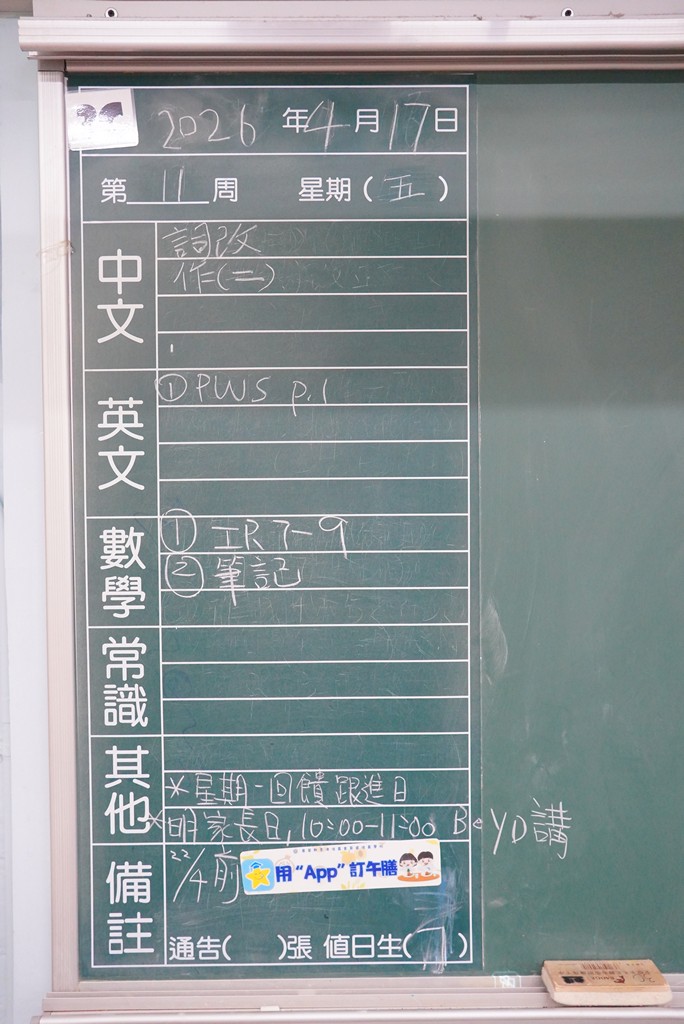 2026年4月17日
第11周 星期(五)
中文
詞改
作(二)
英文
① PWS p.1
數學
① IR 7-9
② 筆記
常識
其他
*星期一回饋跟進日
*明家長日,10:00-11:00 B. YD講
備註
22/4前
用“App”訂午膳
通告( )張 值日生( )